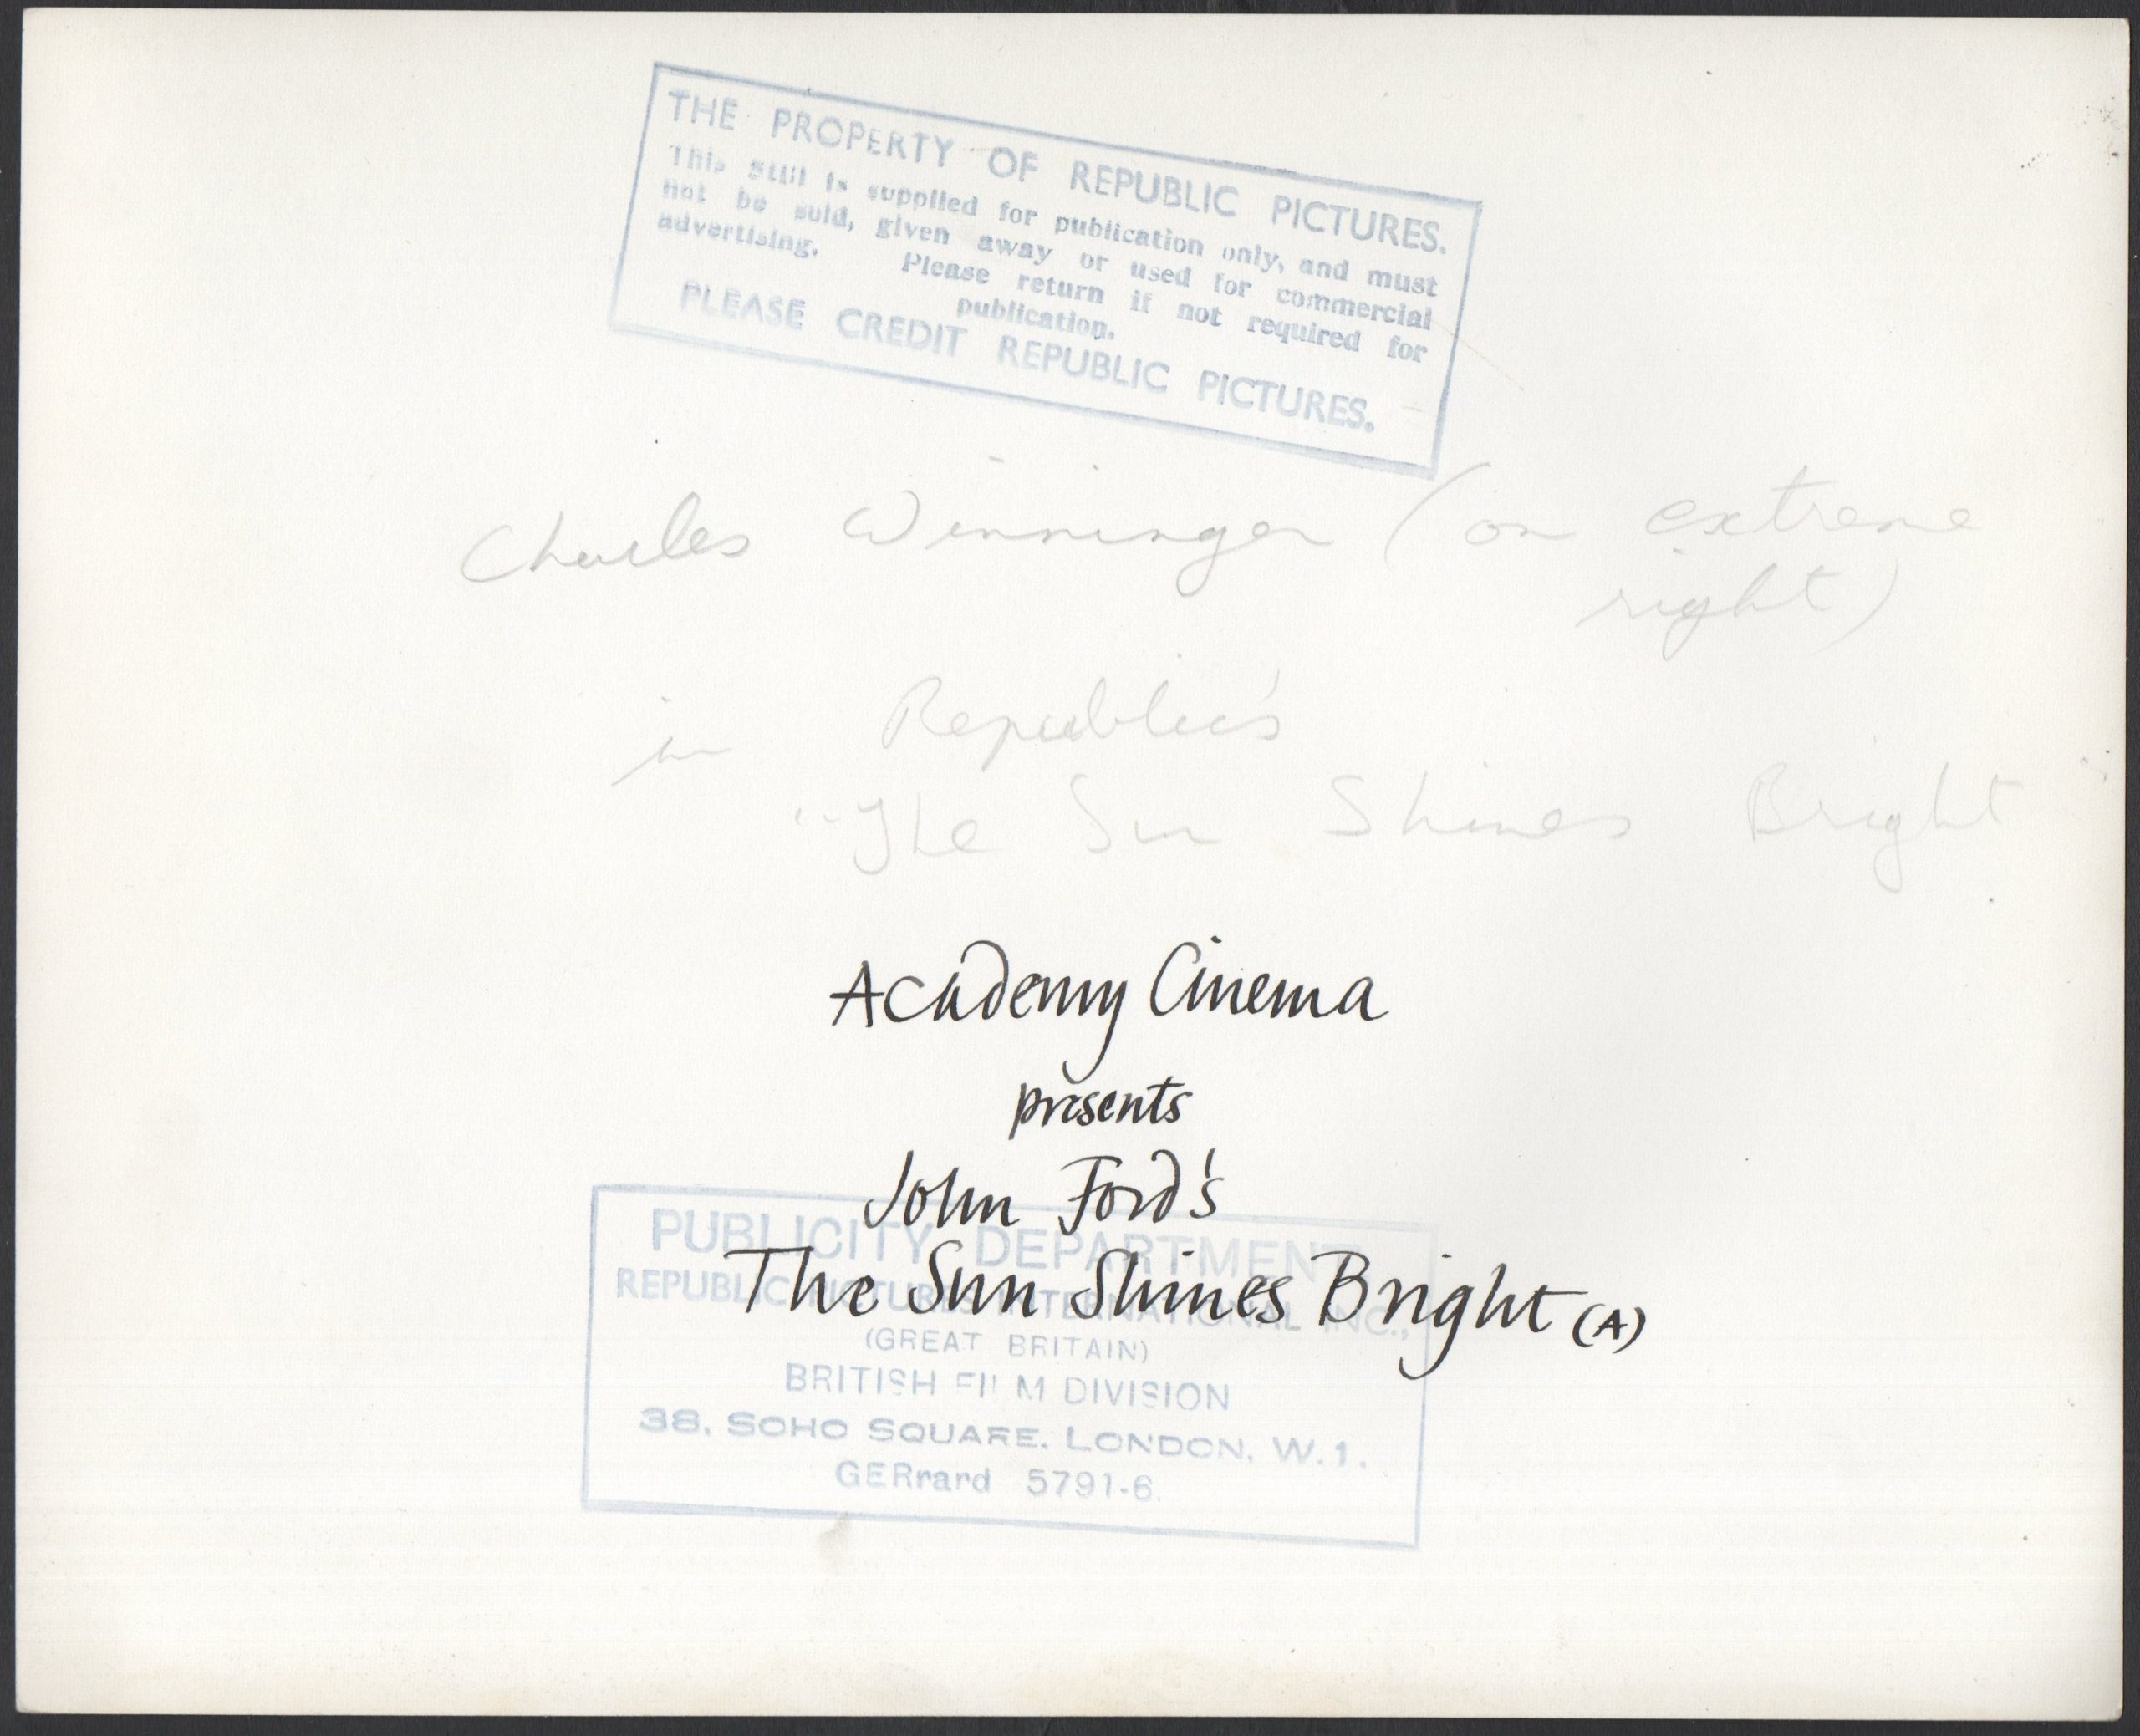 THE PROPERTY OF REPUBLIC PICTURES.
This still is supplied for publication only, and must
not be sold, given away or used for commercial
advertising. Please return if not required for
publication.
PLEASE CREDIT REPUBLIC PICTURES.
Charles Winninger (on extreme
right)
in Republic's
"The Sun Shines Bright"
Academy Cinema
presents
John Ford's
The Sun Shines Bright (A)
PUBLICITY DEPARTMENT
REPUBLIC PICTURES INTERNATIONAL INC.,
(GREAT BRITAIN)
BRITISH FILM DIVISION
38, SOHO SQUARE, LONDON, W.1.
GERrard 5791-6.